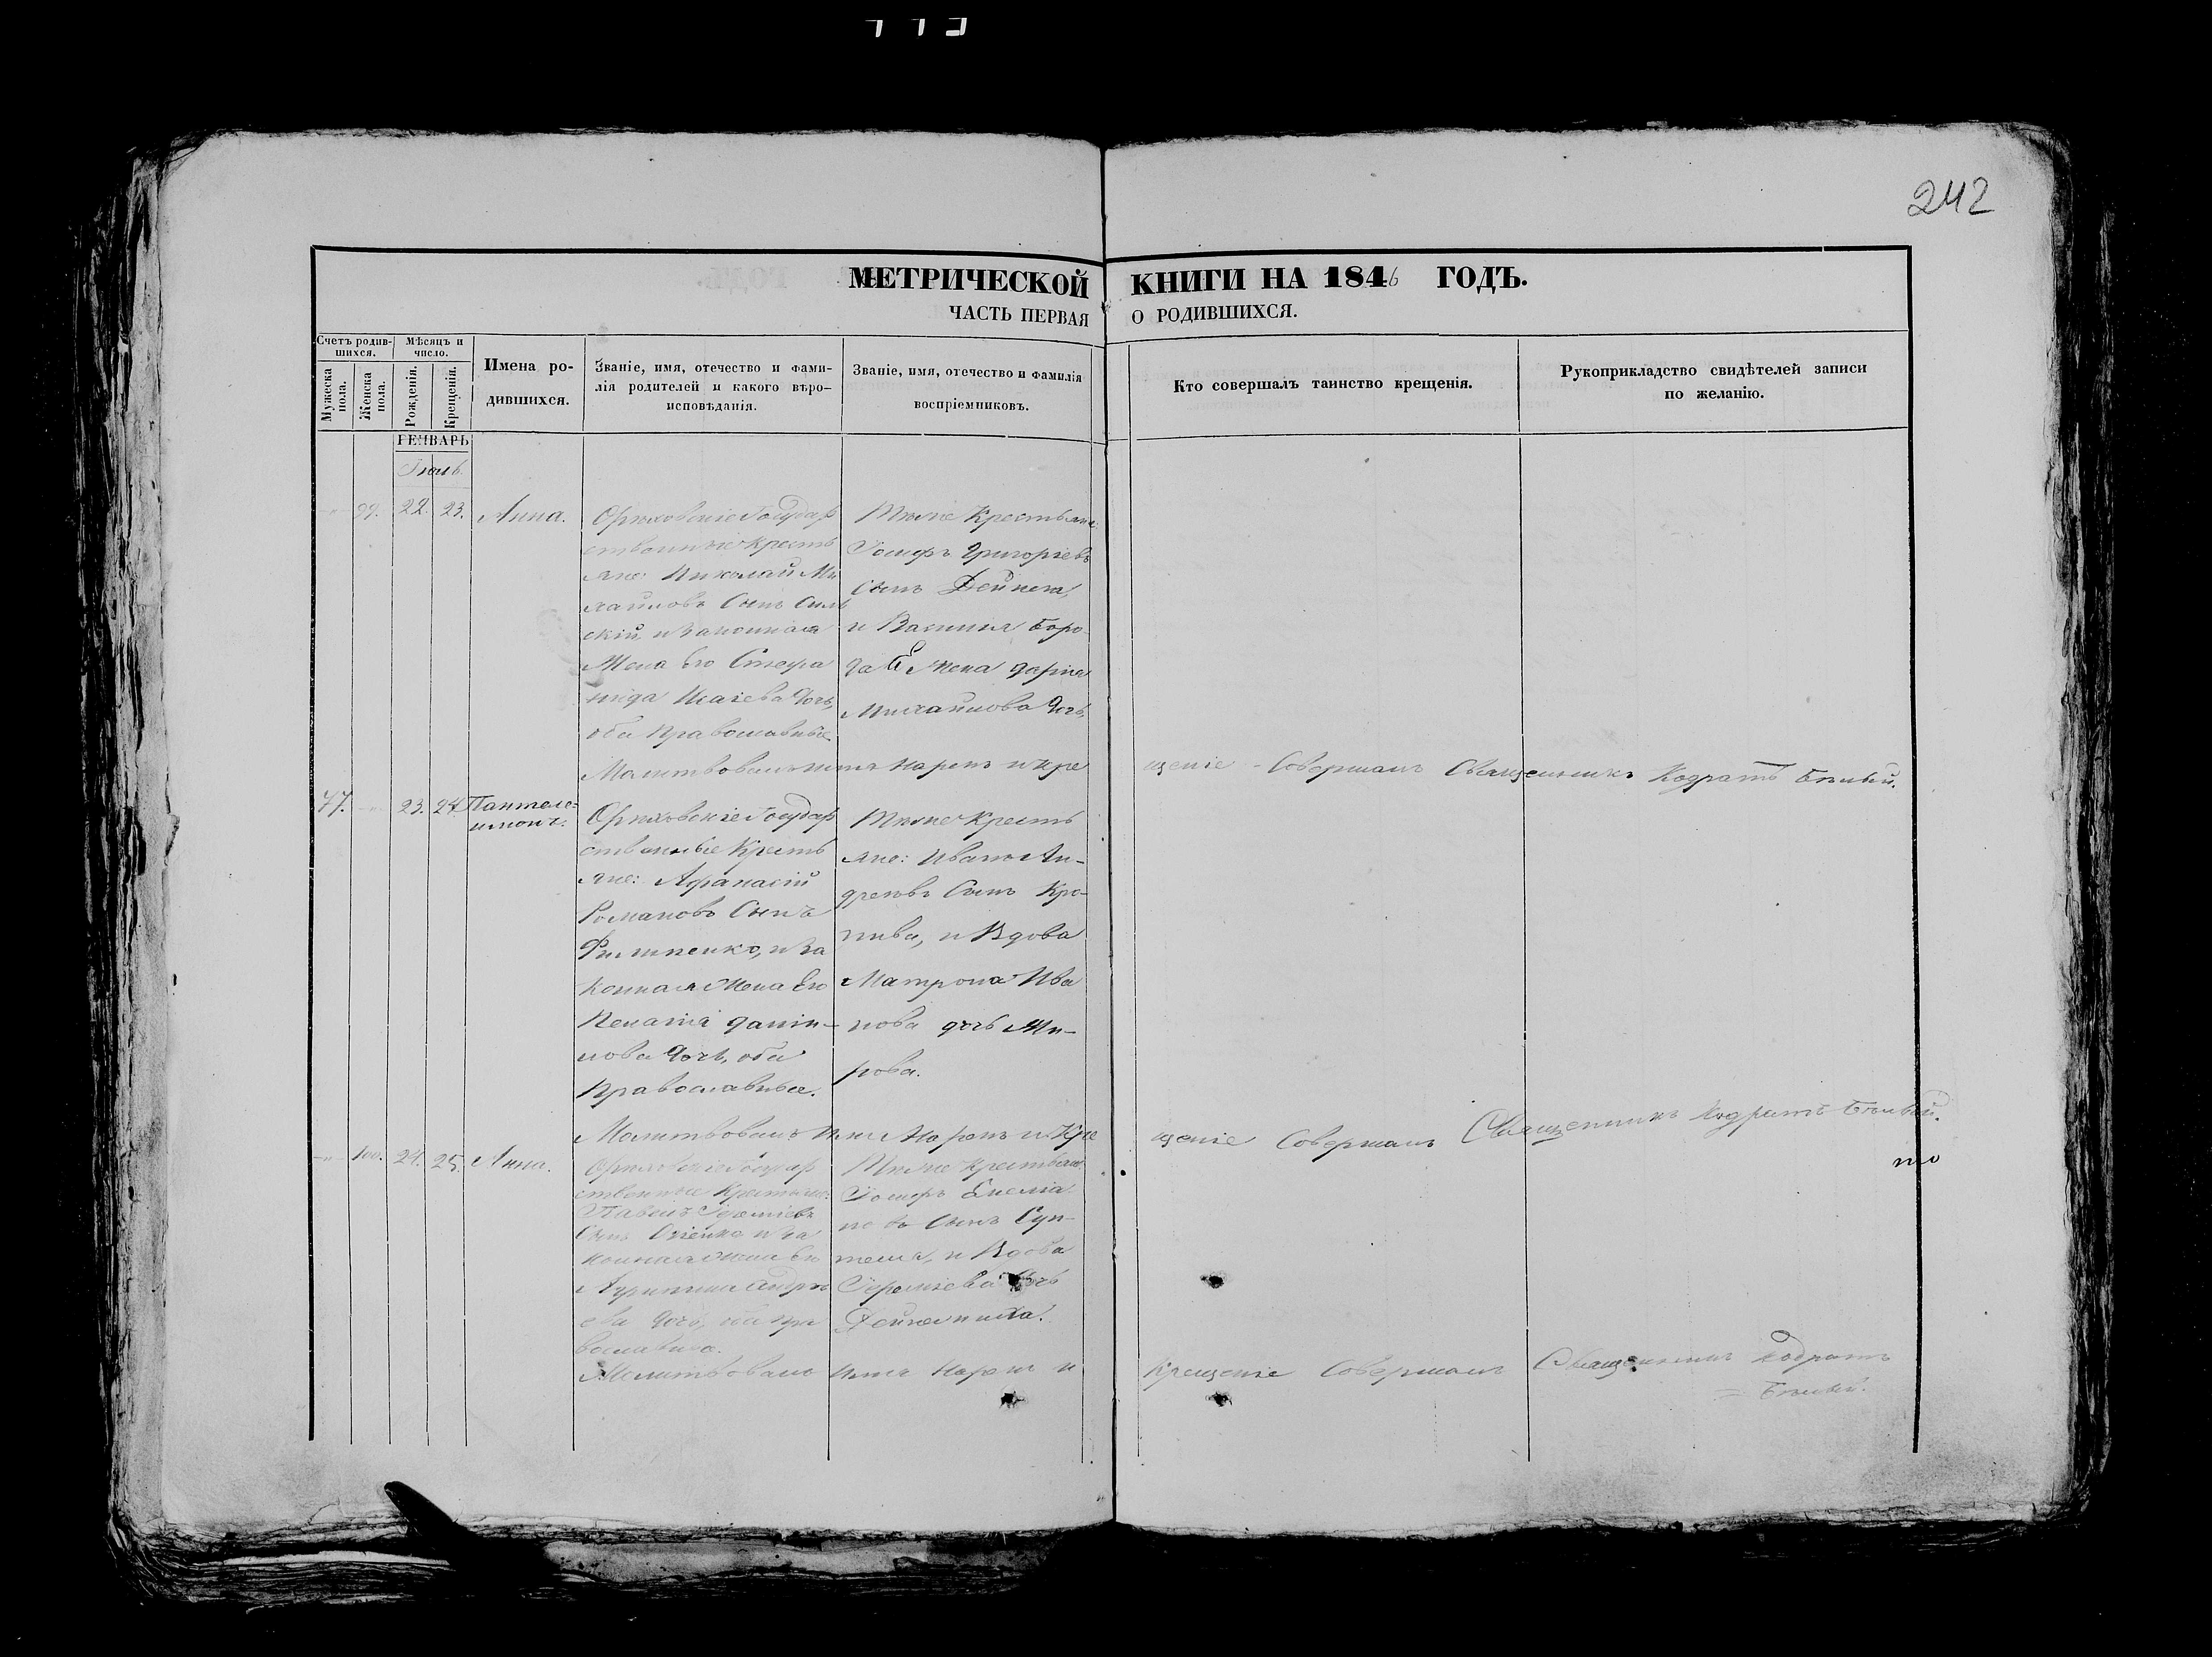 242
МЕТРИЧЕСКОЙ КНИГИ НА 1846 ГОДЪ.
ЧАСТЬ ПЕРВАЯ О РОДИВШИХСЯ.
Счетъ родив-
шихся.
Мужеска
пола.
Женска
пола.
Мѣсяцъ и
число.
Рожденія.
Крещенія.
Имена ро-
дившихся.
Званіе, имя, отечество и фами-
лія родителей и какого вѣро-
исповѣданія.
Званіе, имя, отечество и фамилія
воспріемниковъ.
Кто совершалъ таинство крещенія.
Рукоприкладство свидѣтелей записи
по желанію.
ГЕНВАРЬ
Іюль
99. 22. 23. Анна.
Орѣховскіе Государ
ственные кресть
яне: Николай Ми
хайловъ Сынъ
скій, и законная
Жена Его
нида Исаіева дочь,
оба Православные
Тѣже Крестьяне
Іосифъ Григоріевъ
Сынъ Дейнега,
и Василия Боро
Жена Дарія
Михайлова дочь,
Молитвовалъ имя нарекъ и кре
щеніе Совершалъ Священникъ Кодратъ Бѣлый.
77. 23. 24. Пантеле-
имонъ.
Орѣховскіе Государ
ственные Кресть
яне: Афанасій
Романовъ Сынъ
Филипенко, и за
конная Жена Его
Пелагія Данін-
лова дочь, оба
Православные.
Тѣже Кресть
яне: Иванъ Ан-
дреевъ Сынъ Кро-
пива, и Вдова
Матрона Ива
нова дочь Ми-
рова.
Молитвовалъ Имя Нарекъ и Кре
щеніе Совершалъ Священникъ Кодратъ Бѣлый.
100. 24. 25. Анна.
Орѣховскіе Государ
ственные Крестьяне:
Павелъ
Сынъ и за
конная жена Его
Андрѣ
ева дочь, оба пра
вославные.
Тѣже крестьяне
Іосифъ Емелiа
новъ Сынъ Суп-
теля, и Вдова
дочь
Дейнежиха.
Молитвовалъ Имя Нарекъ и
Крещеніе Совершалъ Священникъ Кодратъ
= Бѣлый.